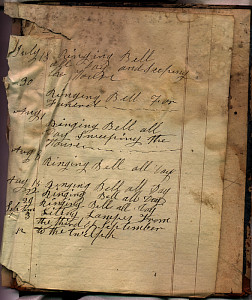 July 13 Ringing Bell
all Day and Sceeping
the House
30
Ringing Bell For
Funeral
Ringing Bell all
Day Sweeping the
House
Ringing Bell all Day
Ringing Bell all Day
Ringing Bell all Day
29 Ringing Bell all Day
3 Lamps From
the third of September
12 to the twelfth